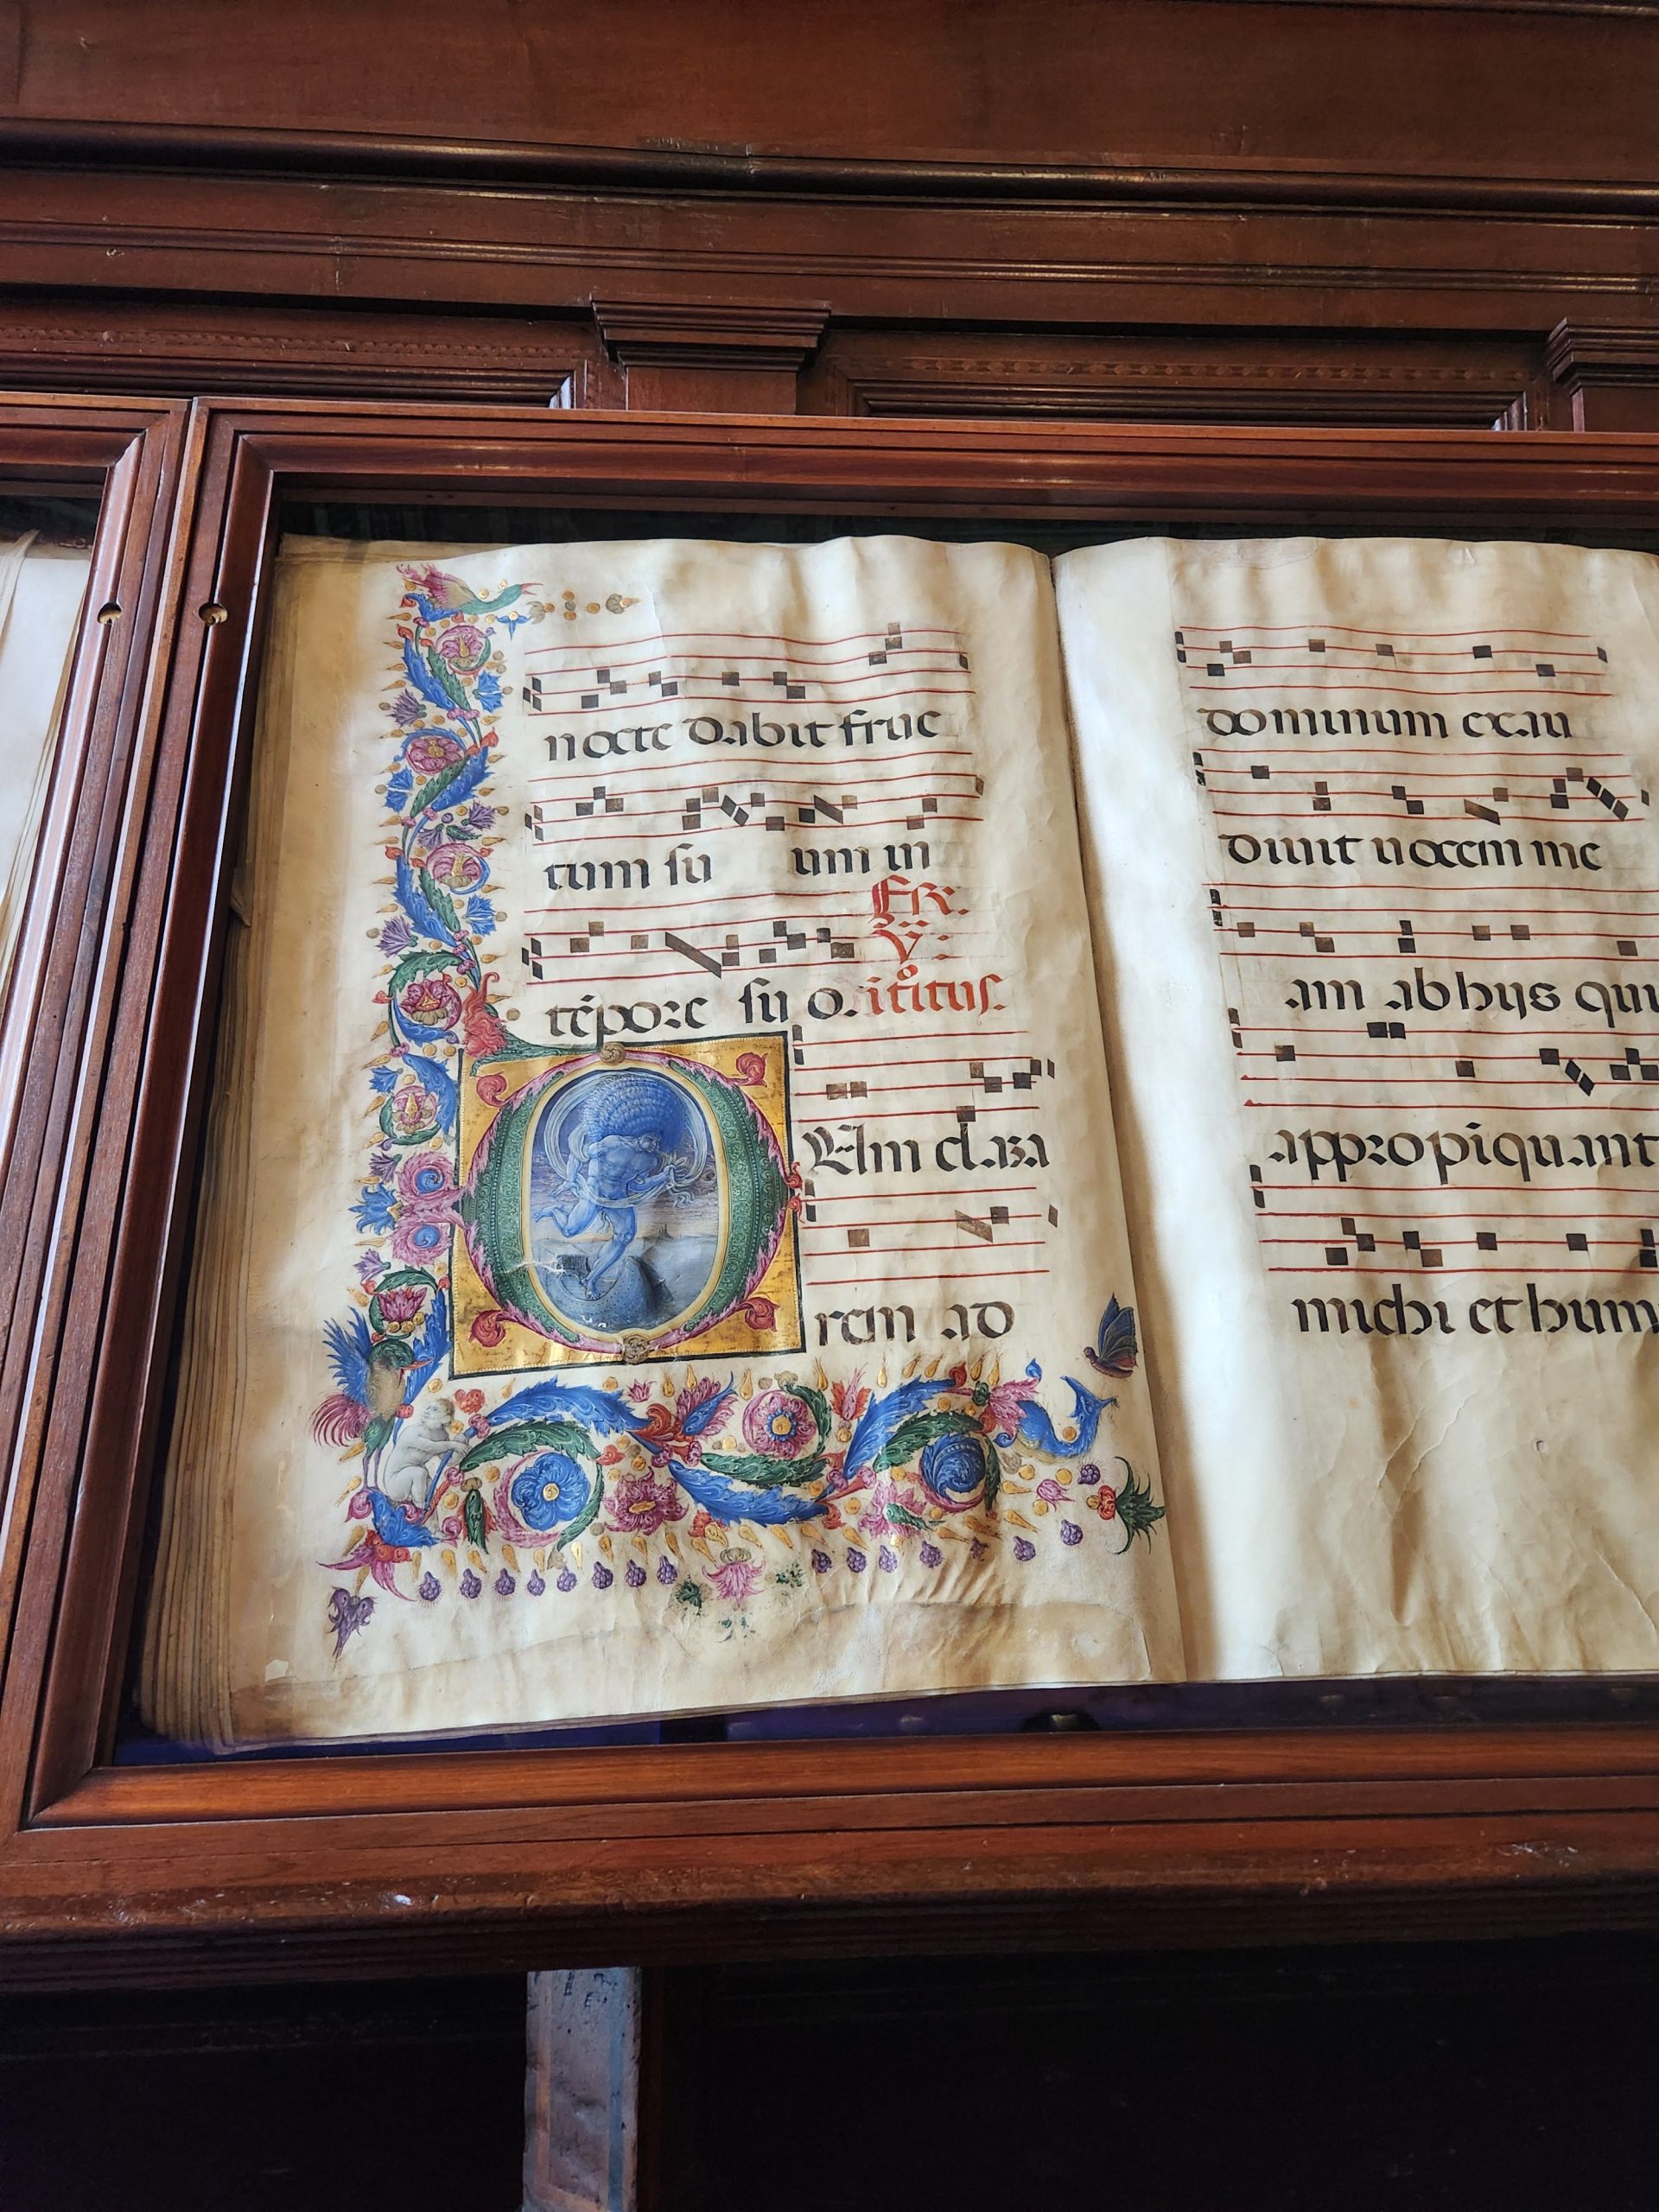 nocte dabit fruc
tum su um in
FR.
V.
tēpore su o. introitus.
DUm clama
rem ad
dominum exau
diuit uocem me
am ab hijs qui
appropiquant
michi et hum